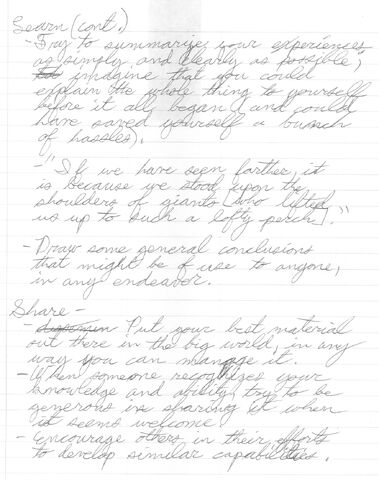 Learn (cont.)
- Try to summarize your experiences
as simply and clearly as possible;
imagine that you could
explain the whole thing to yourself
before it all began (and could
have saved yourself a bunch
of hassles).
- "If we have seen farther, it
is because we stood upon the
shoulders of giants (who lifted
us up to such a lofty perch)."
- Draw some general conclusions
that might be of use to anyone,
in any endeavor.
Share -
- Put your best material
out there in the big world, in any
way you can manage it.
- When someone recognizes your
knowledge and ability, try to be
generous in sharing it when
it seems welcome
- Encourage others in their efforts
to develop similar capabilities.